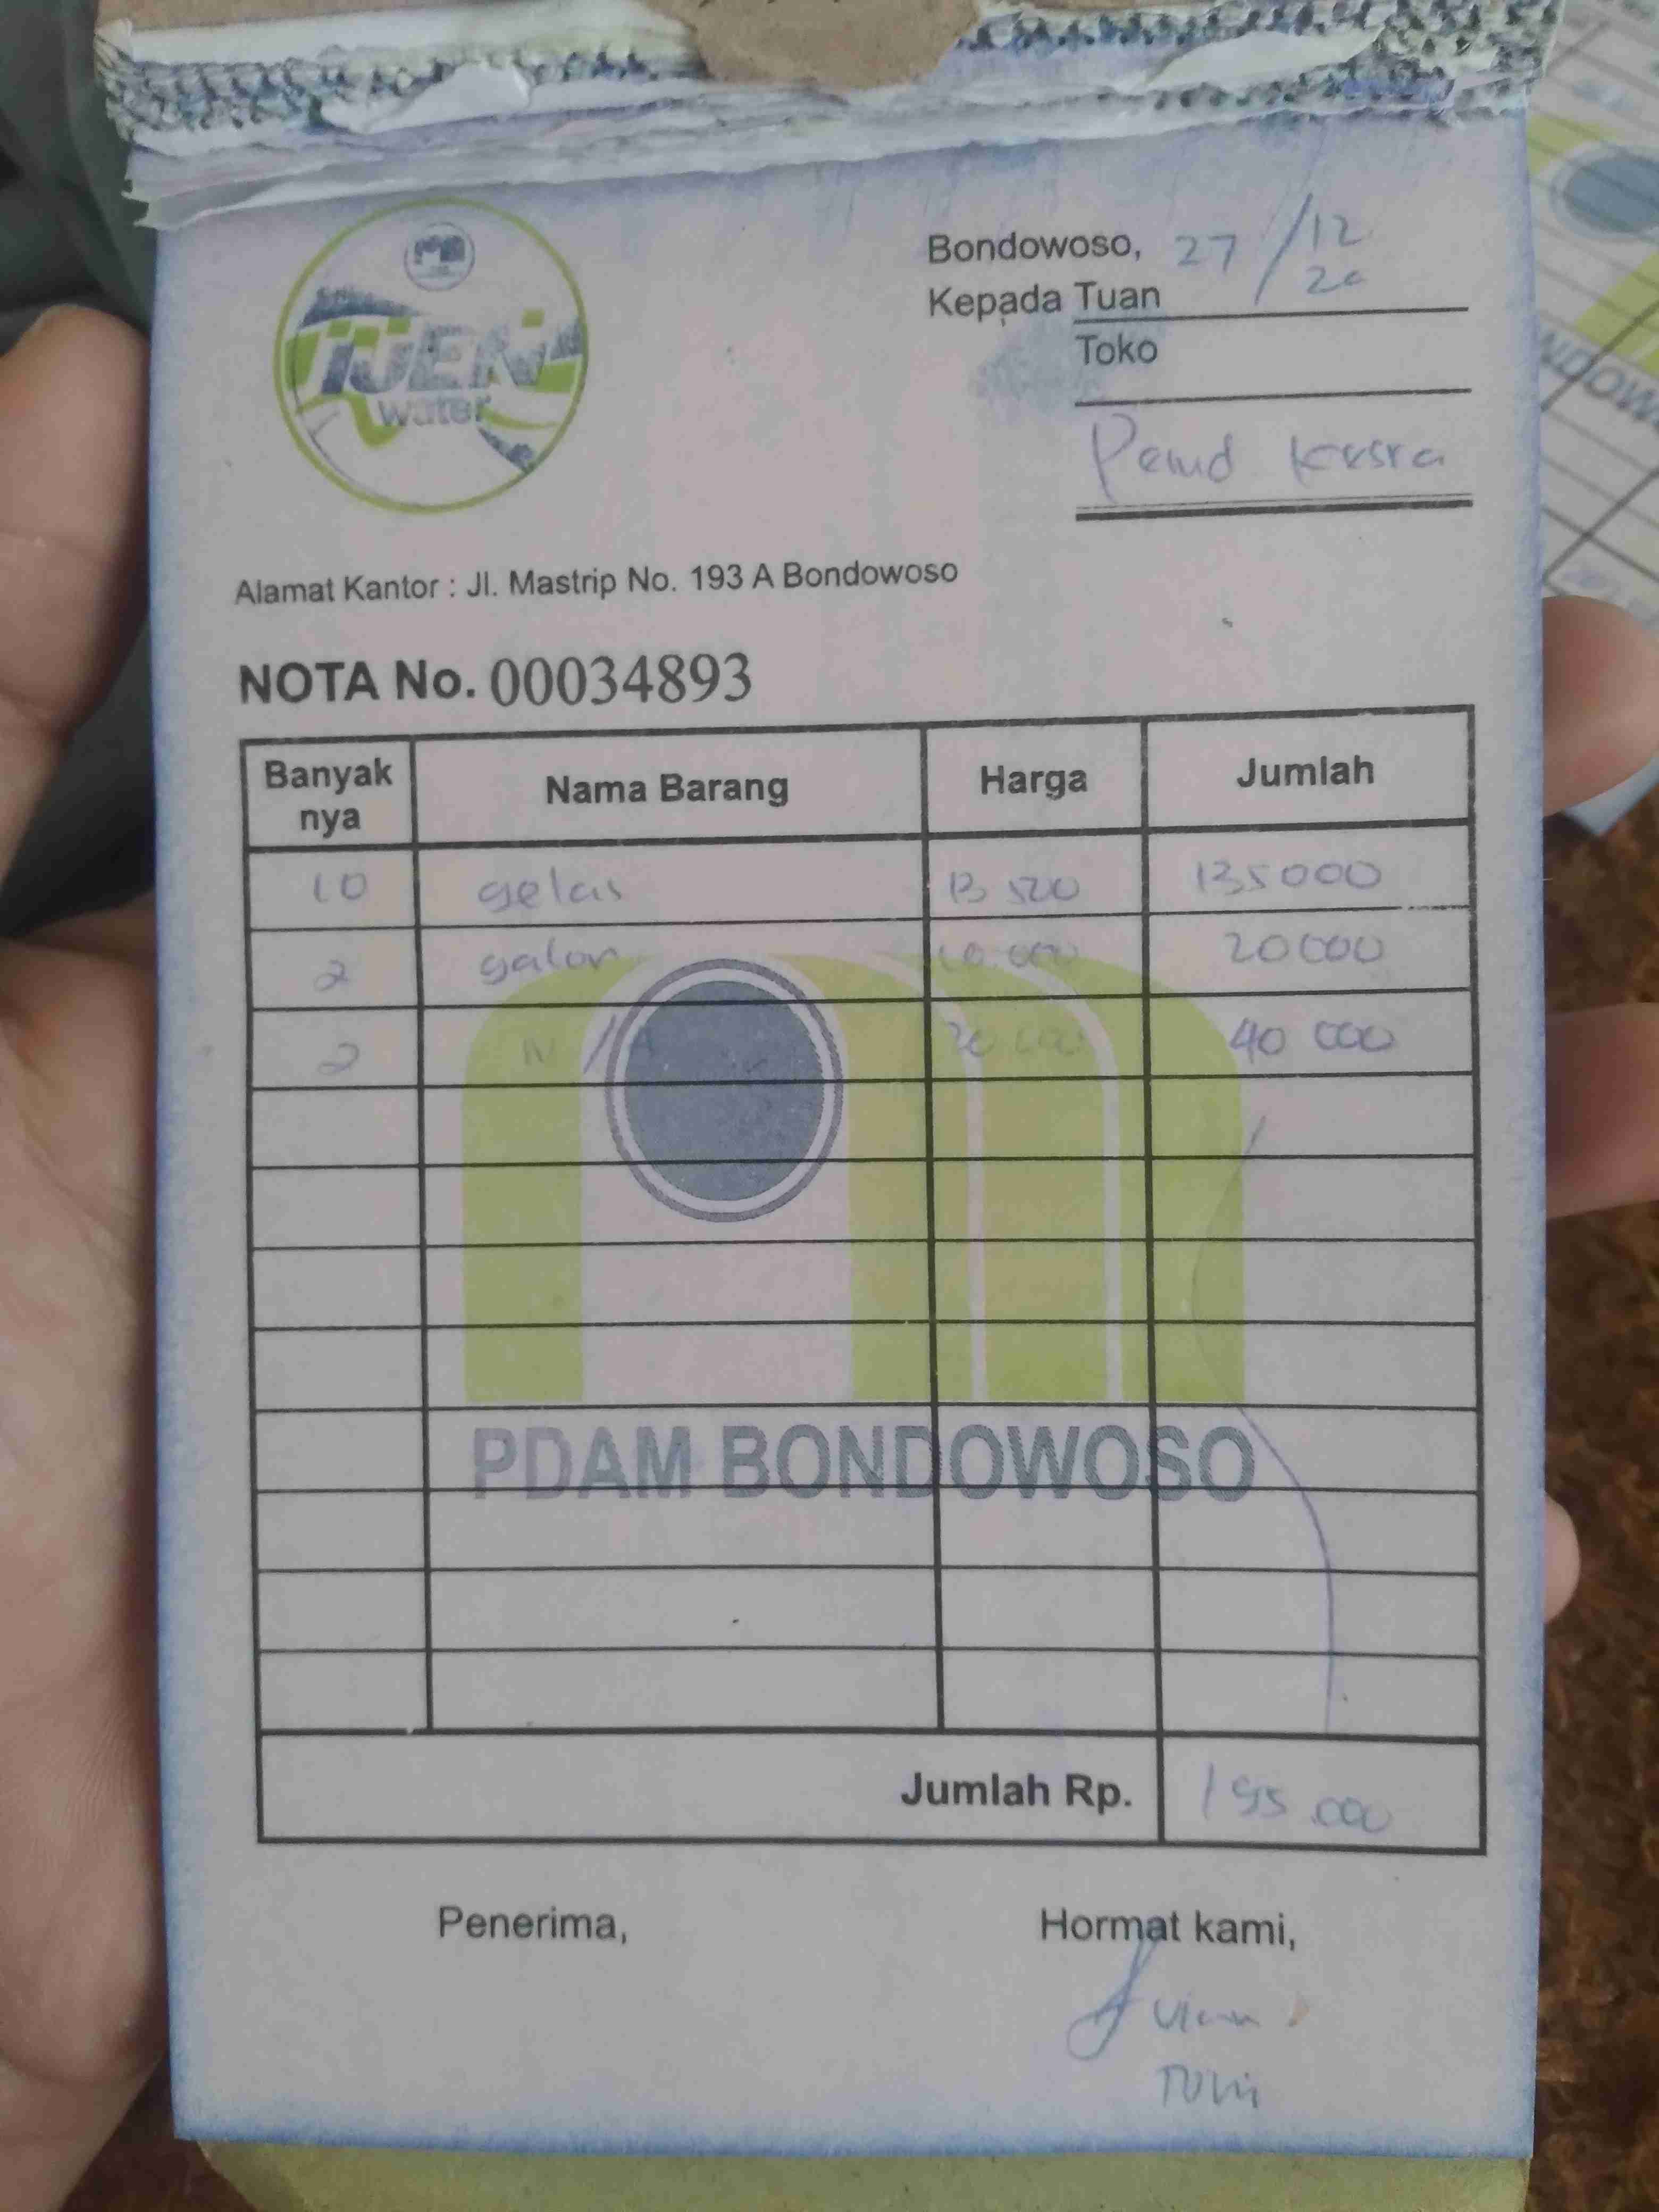 IJEN
water
Bondowoso, 27/12 20
Kepada Tuan
Toko
Pemd Kesra
Alamat Kantor : Jl. Mastrip No. 193 A Bondowoso
NOTA No. 00034893
Banyak nya Nama Barang Harga Jumlah
10 gelas 13 500 135000
2 galon 10.000 20000
2 N/A 20 000 40 000
PDAM BONDOWOSO
Jumlah Rp. 195.000
Penerima, Hormat kami,